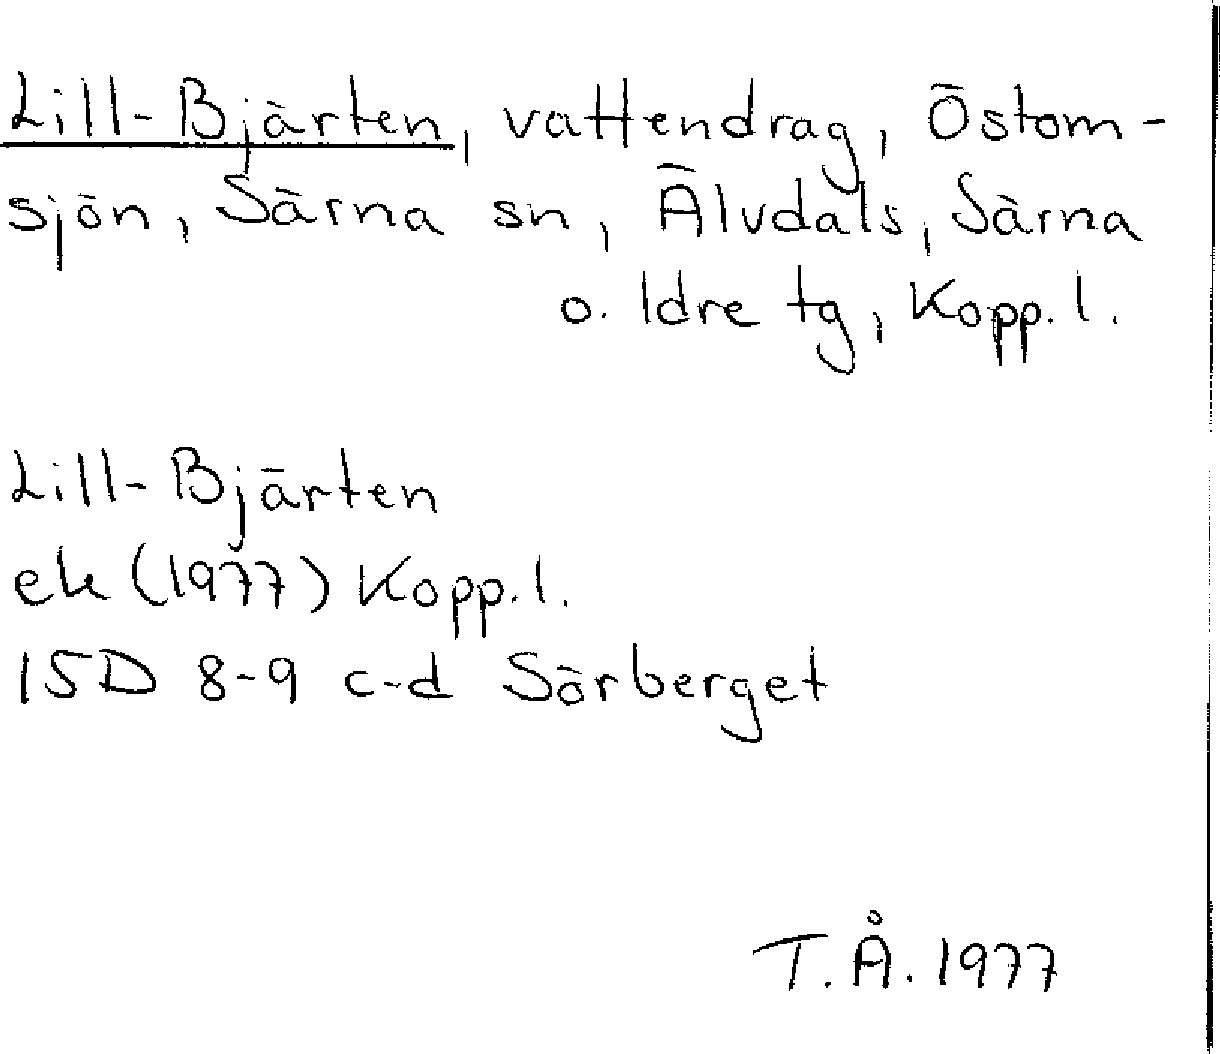 Lill-Bjärten, vattendrag, Östom-
sjön, Särna sn, Älvdals, Särna
o. Idre tg, Kopp. l.
Lill-Bjärten
ek (1977) Kopp. l.
15D 8-9 c-d Sörberget
T.Å. 1977